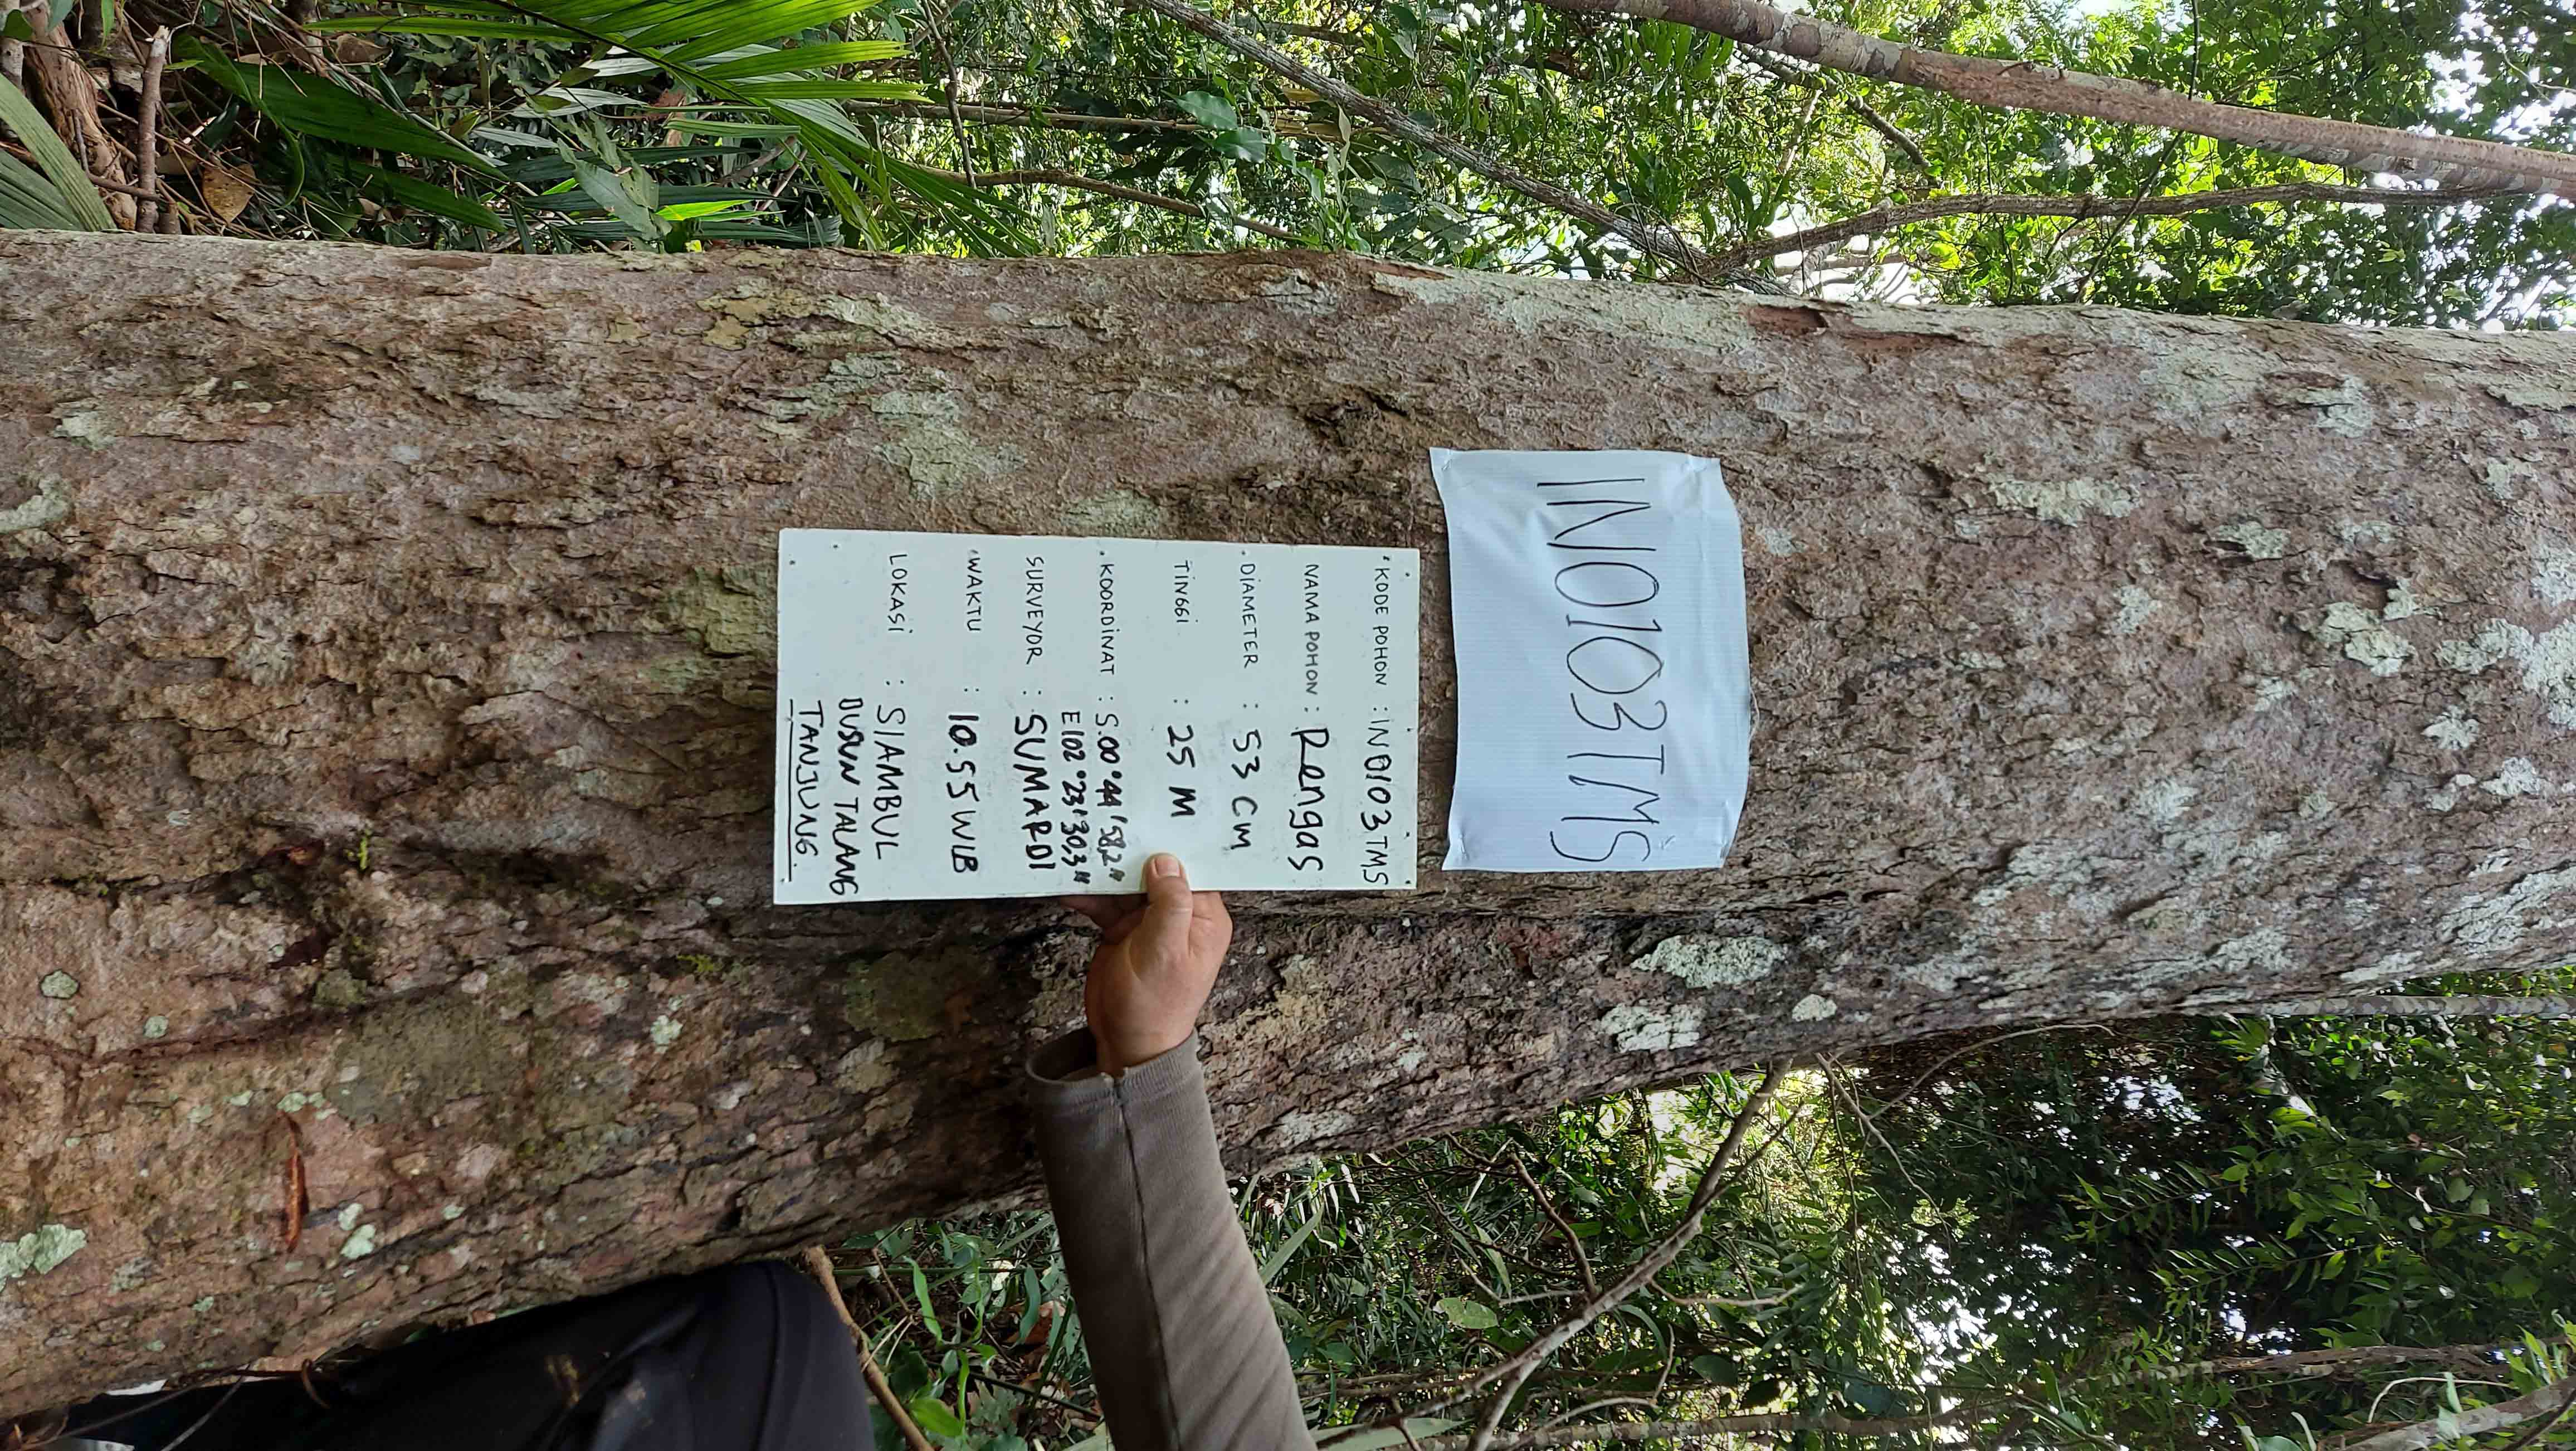 IN0103TMS
KODE POHON : IN0103TMS
NAMA POHON : Rengas
DIAMETER : 53 cm
TINGGI : 25 M
KOORDINAT : S.00°44'58,2"
E102°23'30,3"
SURVEYOR : SUMARDI
WAKTU : 10.55 WIB
LOKASI : SIAMBUL
DUSUN TALANG
TANJUNG.